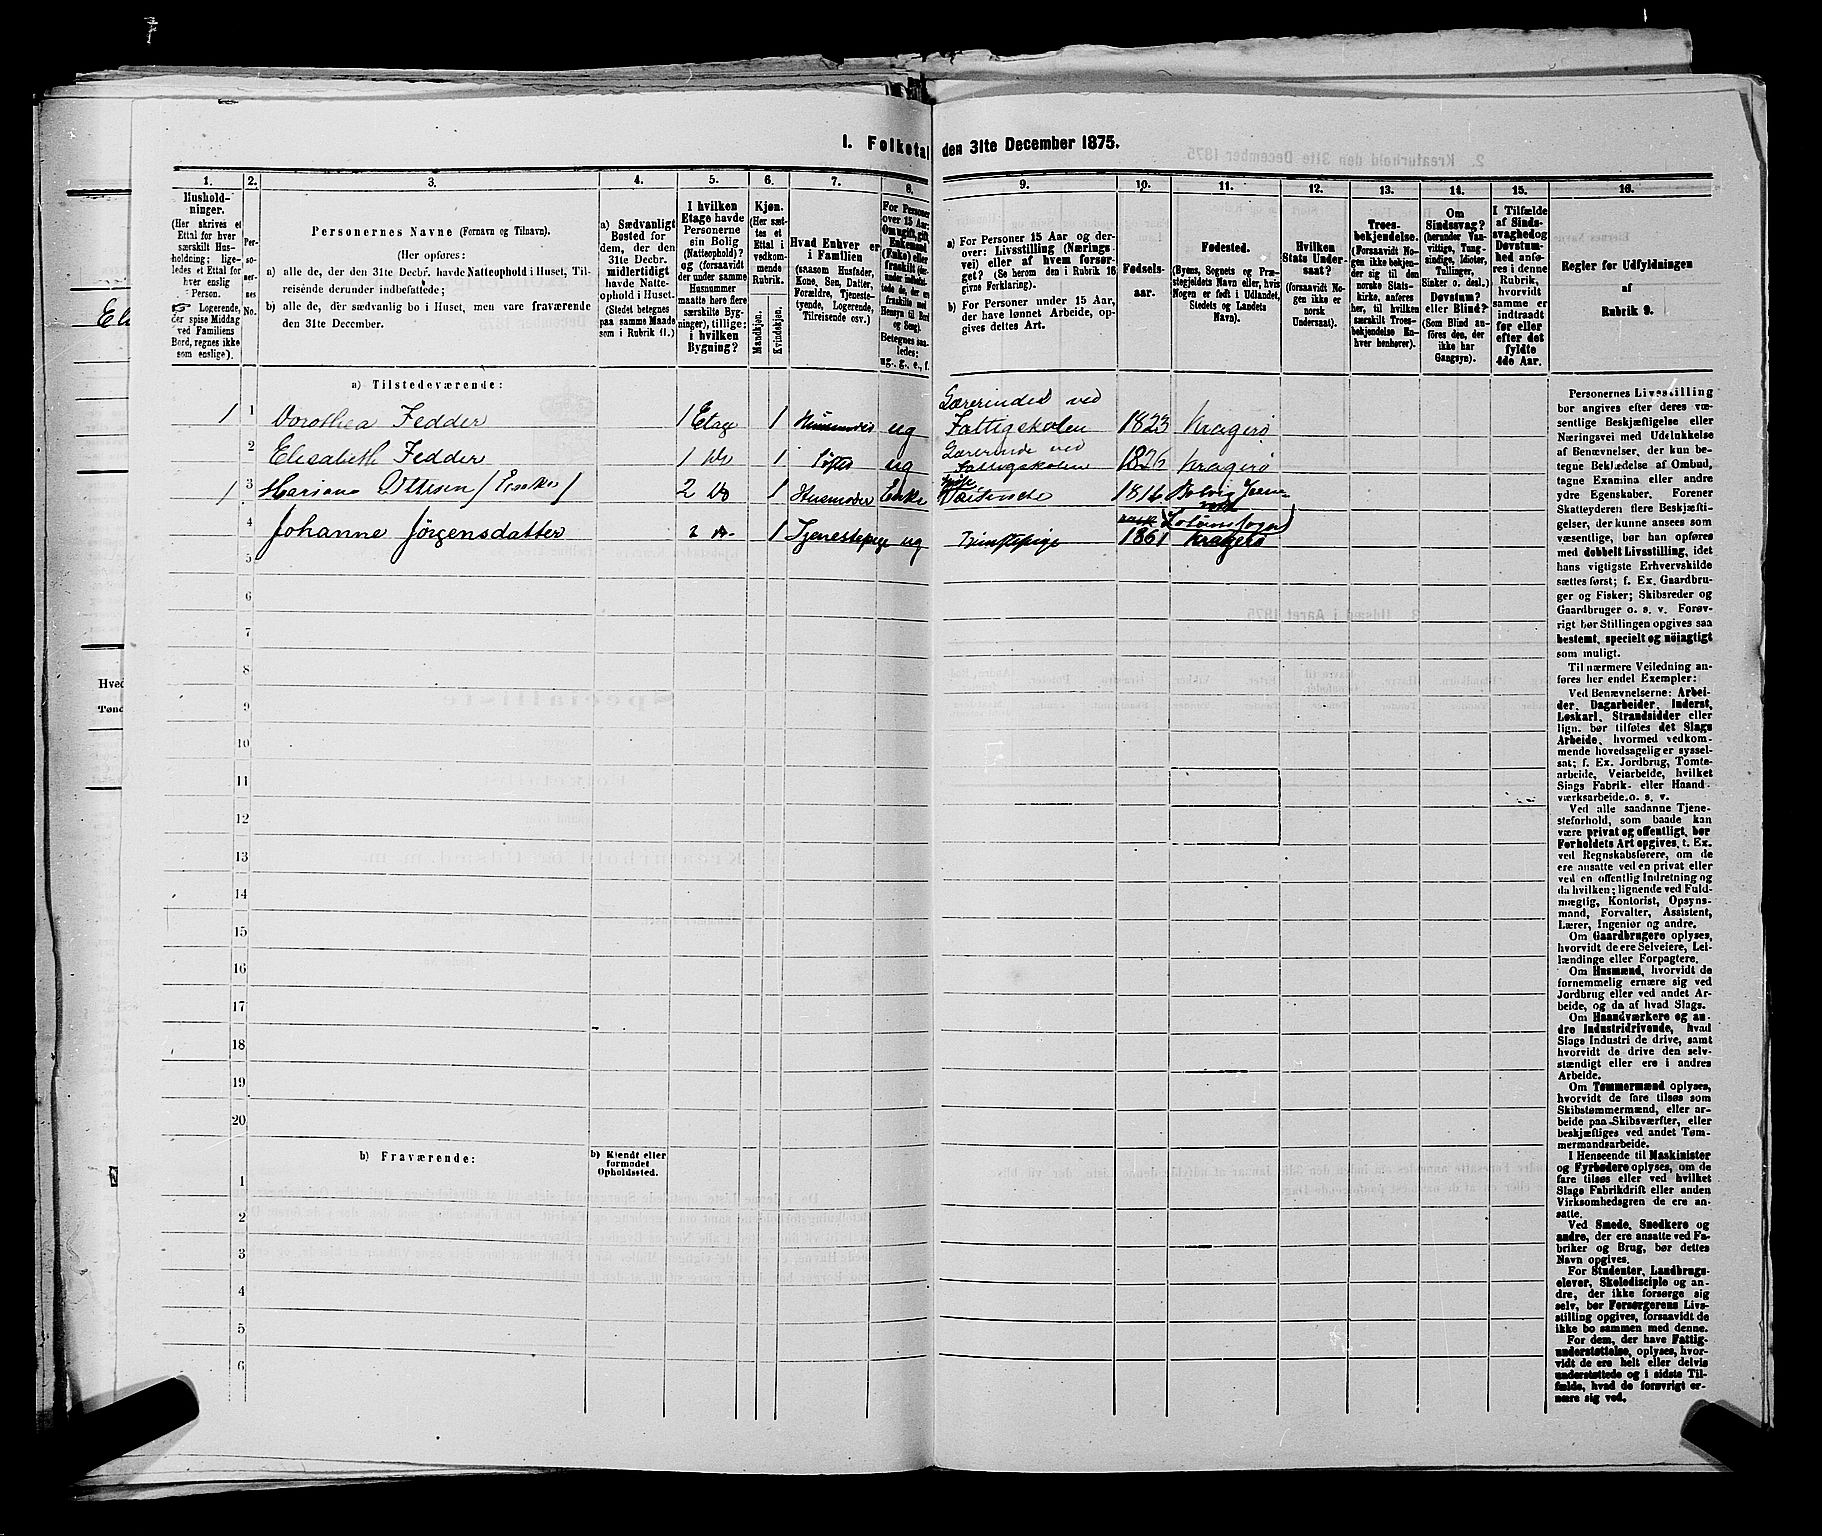 I. Folketal den 31te December 1875.
1. 2. 3. 4. 5. 6. 7. 8. 9. 10. 11. 12. 13. 14. 15. 16.
Hushold-
ninger.
(Her skrives et
Ettal for hver
særskilt Hus-
holdning; lige-
ledes et Ettal for
hver enslig
Person.
Logerende,
der spise Middag
ved Familiens
Bord, regnes ikke
som enslige).
Per-
so-
ner-
nes
No.
Personernes Navne (Fornavn og Tilnavn).
(Her opføres:
a) alle de, der den 31te Decbr. havde Natteophold i Huset, Til-
reisende derunder indbefattede;
b) alle de, der sædvanlig bo i Huset, men vare fraværende
den 31te December.
a) Sædvanligt
Bosted for
dem, der den
31te Decbr.
midlertidigt
havde Natte-
ophold i Huset.
(Stedet betegnes
paa samme Maade
som i Rubrik 11.)
I hvilken
Etage havde
Personerne
sin Bolig
(Natteophold)?
og (forsaavidt
der under samme
Husnummer
maatte høre flere
særskilte Byg-
ninger), tillige:
i hvilken
Bygning?
Kjøn.
(Her sæt-
tes et
Ettal i
vedkom-
mende
Rubrik.
Mandkjøn.
Kvindekjøn.
Hvad Enhver er
i Familien
(saasom Husfader,
Kone, Søn, Datter,
Forældre, Tjeneste-
tyende, Logerende,
Tilreisende osv.)
For Personer
over 15 Aar:
Om ugift, gift,
Enkemand
(Enke) eller
fraskilt
Betegnes saa-
ledes:
ug., g., e., f.
a) For Personer 15 Aar og der-
over: Livsstilling (Nærings-
vei) eller af hvem forsør-
get? (Se herom den i Rubrik 16
givne Forklaring).
b) For Personer under 15 Aar,
der have lønnet Arbeide, op-
gives dettes Art.
Fødsels-
aar.
Fødested.
(Byens, Sognets og Præ-
stegjeldets Navn eller, hvis
Nogen er født i Udlandet,
Stedets og Landets
Navn).
Hvilken
Stats Under-
saat?
(forsaavidt No-
gen ikke er
norsk
Undersaat).
Troes-
bekjendelse.
(Forsaavidt No-
gen ikke bekjen-
der sig til den
norske Stats-
kirke, anføres
her, til hvilken
særskilt Troes-
bekjendelse En-
hver henhører).
Om
Sindssvag?
(herunder Van-
vittige, Tung-
sindige, Idioter,
Tullinger,
Sinker o. desl.)
Døvstum?
eller Blind?
(Som Blind an-
føres den, der
ikke har
Gangsyn).
I Tilfælde
af Sinds-
svaghed og
Døvstum-
hed anfø-
res i denne
Rubrik,
hvorvidt
samme er
indtraadt
før eller
efter det
fyldte
4de Aar.
Regler for Udfyldningen
af
Rubrik 9.
a) Tilstedeværende:
1 1 Dorothea Fedder 1 Etage 1 ug Lærerinde ved Fattigskolen 1823 Kragerø
2 Elisabeth Fedder 1 do 1 ug Lærerinde ved Fattigskolen 1826 Kragerø
1 3 Mariane Ottesen / Enke / 2 do 1 Husmoder Enke
4 Johanne Jörgensdatter 2 do 1 Tjenestepige ug 1861 Kragerø
5
6
7
8
9
10
11
12
13
14
15
16
17
18
19
20
b) Fraværende:
b) Kjendt eller
formodet
Opholdssted.
1
2
3
4
5
6
Personernes Livsstilling
bør angives efter deres væ-
sentlige Beskjæftigelse eller
Næringsvei med Udelukkelse
af Benævnelser, der kun be-
tegne Beklædelse af Ombud,
tagne Examina eller andre
ydre Egenskaber. Forener
Skatteyderen flere Beskjæfti-
gelser, der kunne ansees som
væsentlige, bør han opføres
med dobbelt Livsstilling, idet
hans vigtigste Erhvervskilde
sættes først; f. Ex. Gaardbru-
ger og Fisker; Skibsreder og
Gaardbruger o. s. v. Forøv-
rigt bør Stillingen opgives saa
bestemt, specielt og nøiagtigt
som muligt.
Til nærmere Veiledning an-
føres her endel Exempler:
Ved Benævnelserne: Arbei-
der, Dagarbeider, Inderst,
Løskarl, Strandsidder eller
lign. bør tilføies det Slags
Arbeide, hvormed vedkom-
mende hovedsagelig er syssel-
sat; f. Ex. Jordbrug, Tomte-
arbeide, Veiarbeide, hvilket
Slags Fabrik- eller Haand-
værksarbeide.o. s. v.
Ved alle saadanne Tjene-
steforhold, som baade kan
være privat og offentligt, bør
Forholdets Art opgives, t. Ex.
ved Regnskabsførere, om de
ere ansatte ved en privat eller
ved en offentlig Indretning og
da hvilken; lignende ved Fuld-
mægtig, Kontorist, Opsyns-
mand, Forvalter, Assistent,
Lærer, Ingeniør og andre.
Om Gaardbrugere oplyses,
hvorvidt de ere Selveiere, Lei-
lændinge eller Forpagtere.
Om Husmænd, hvorvidt de
fornemmelig ernære sig ved
Jordbrug eller ved andet Ar-
beide, og da af hvad Slags.
Om Haandværkere og an-
dre Industridrivende, hvad
Slags Industri de drive, samt
hvorvidt de drive den selv-
stændigt eller ere i andres
Arbeide.
Om Tømmermænd oplyses,
hvorvidt de fare tilsøs som
Skibstømmermænd, eller ar-
beide paa Skibsværfter, eller
beskjæftiges ved andet Tøm-
mermandsarbeide.
I Henseende til Maskinister
og Fyrbødere oplyses, om de
fare tilsøs eller ved hvilket
Slags Fabrikdrift eller anden
Virksomhedsgren de ere an-
satte.
Ved Smede, Snedkere og
andre, der ere ansatte ved Fa-
briker og Brug, bør dettes
Navn opgives.
For Studenter, Landbrugs-
elever, Skoledisciple og an-
dre, der ikke forsørge sig
selv, bør Forsørgerens Livs-
stilling opgives, forsaavidt de
ikke bo sammen med denne.
For dem, der have Fattig-
understøttelse, oplyses, hvor-
vidt de ere helt eller delvis
understøttede og i sidste Til-
fælde, hvad de forøvrigt er-
nære sig ved.